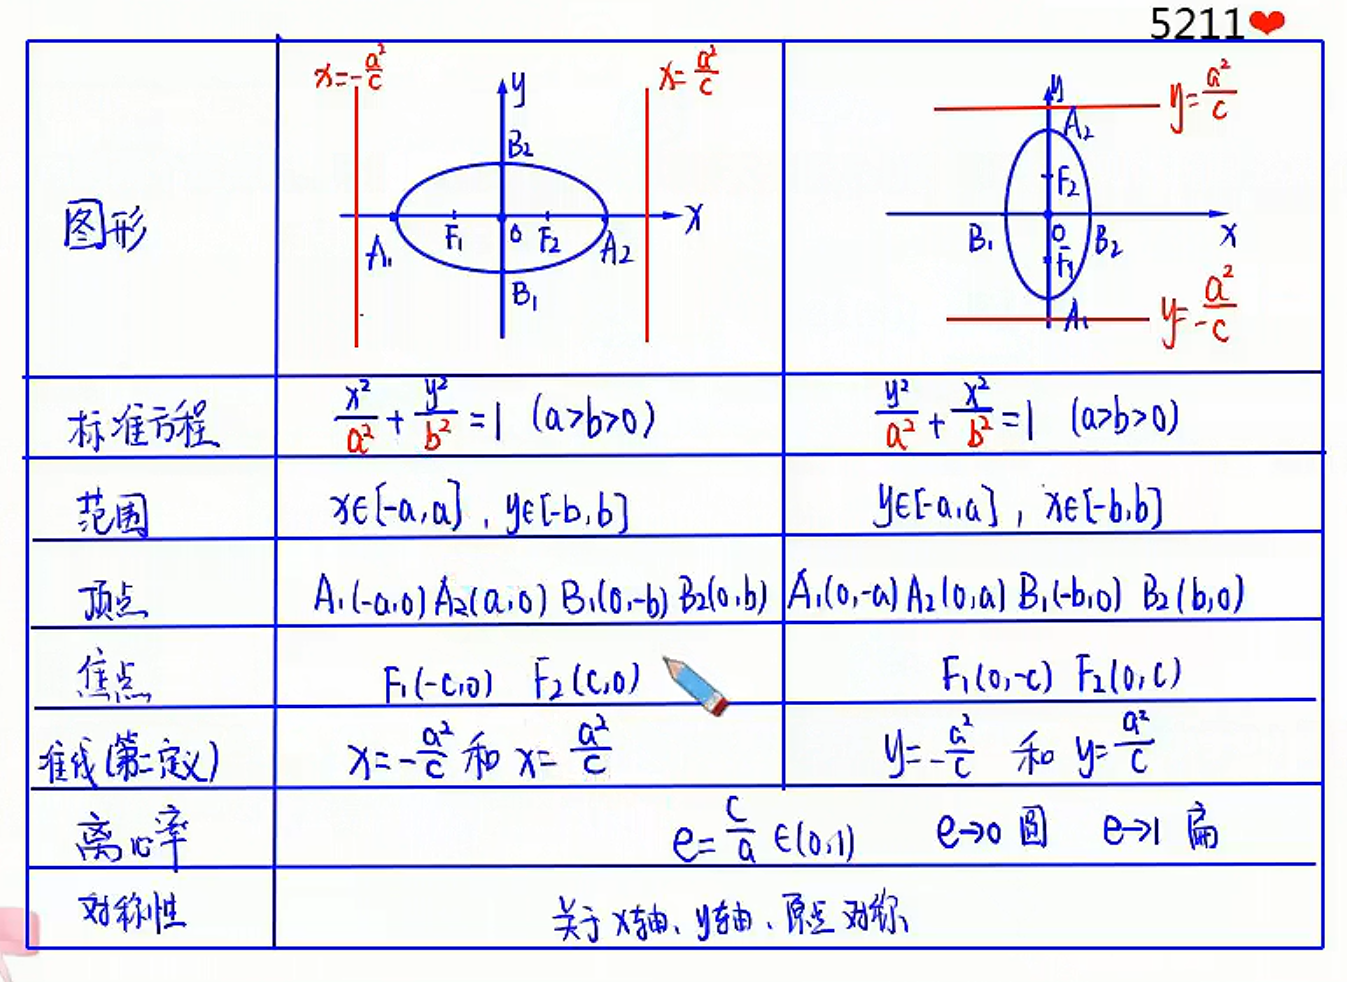 5211❤
x=-a²/c
x=a²/c
y
B₂
A₁ F₁ O F₂ A₂ x
B₁
y
y=a²/c
A₂
F₂
B₁ O B₂ x
F₁
A₁
y=a²/-c
图形
标准方程 x²/a²+y²/b²=1 (a>b>0) y²/a²+x²/b²=1 (a>b>0)
范围 x∈[-a,a], y∈[-b,b] y∈[-a,a], x∈[-b,b]
顶点 A₁(-a,0) A₂(a,0) B₁(0,-b) B₂(0,b) A₁(0,-a) A₂(0,a) B₁(-b,0) B₂(b,0)
焦点 F₁(-c,0) F₂(c,0) F₁(0,-c) F₂(0,c)
准线(第二定义) x=-a²/c 和 x=a²/c y=-a²/c 和 y=a²/c
离心率 e=c/a∈(0,1) e→0 圆 e→1 扁
对称性 关于x轴、y轴、原点对称